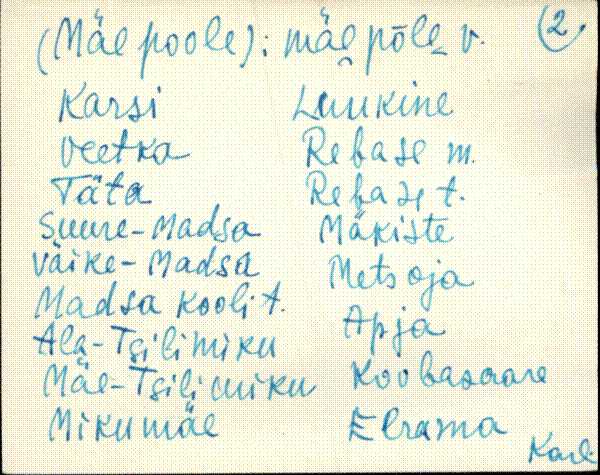 (Mäe poole): mäe põle v. (2.
Karsi
Veetka
Täta
Suure-Madsa
Väike-Madsa
Madsa kooli t.
Ala-Tsilimiku
Mäe-Tsilimiku
Mikumäe
Luukine
Rebase m.
Rebase t.
Mäkiste
Metsoja
Apja
Koobassaare
Elrama
Karli